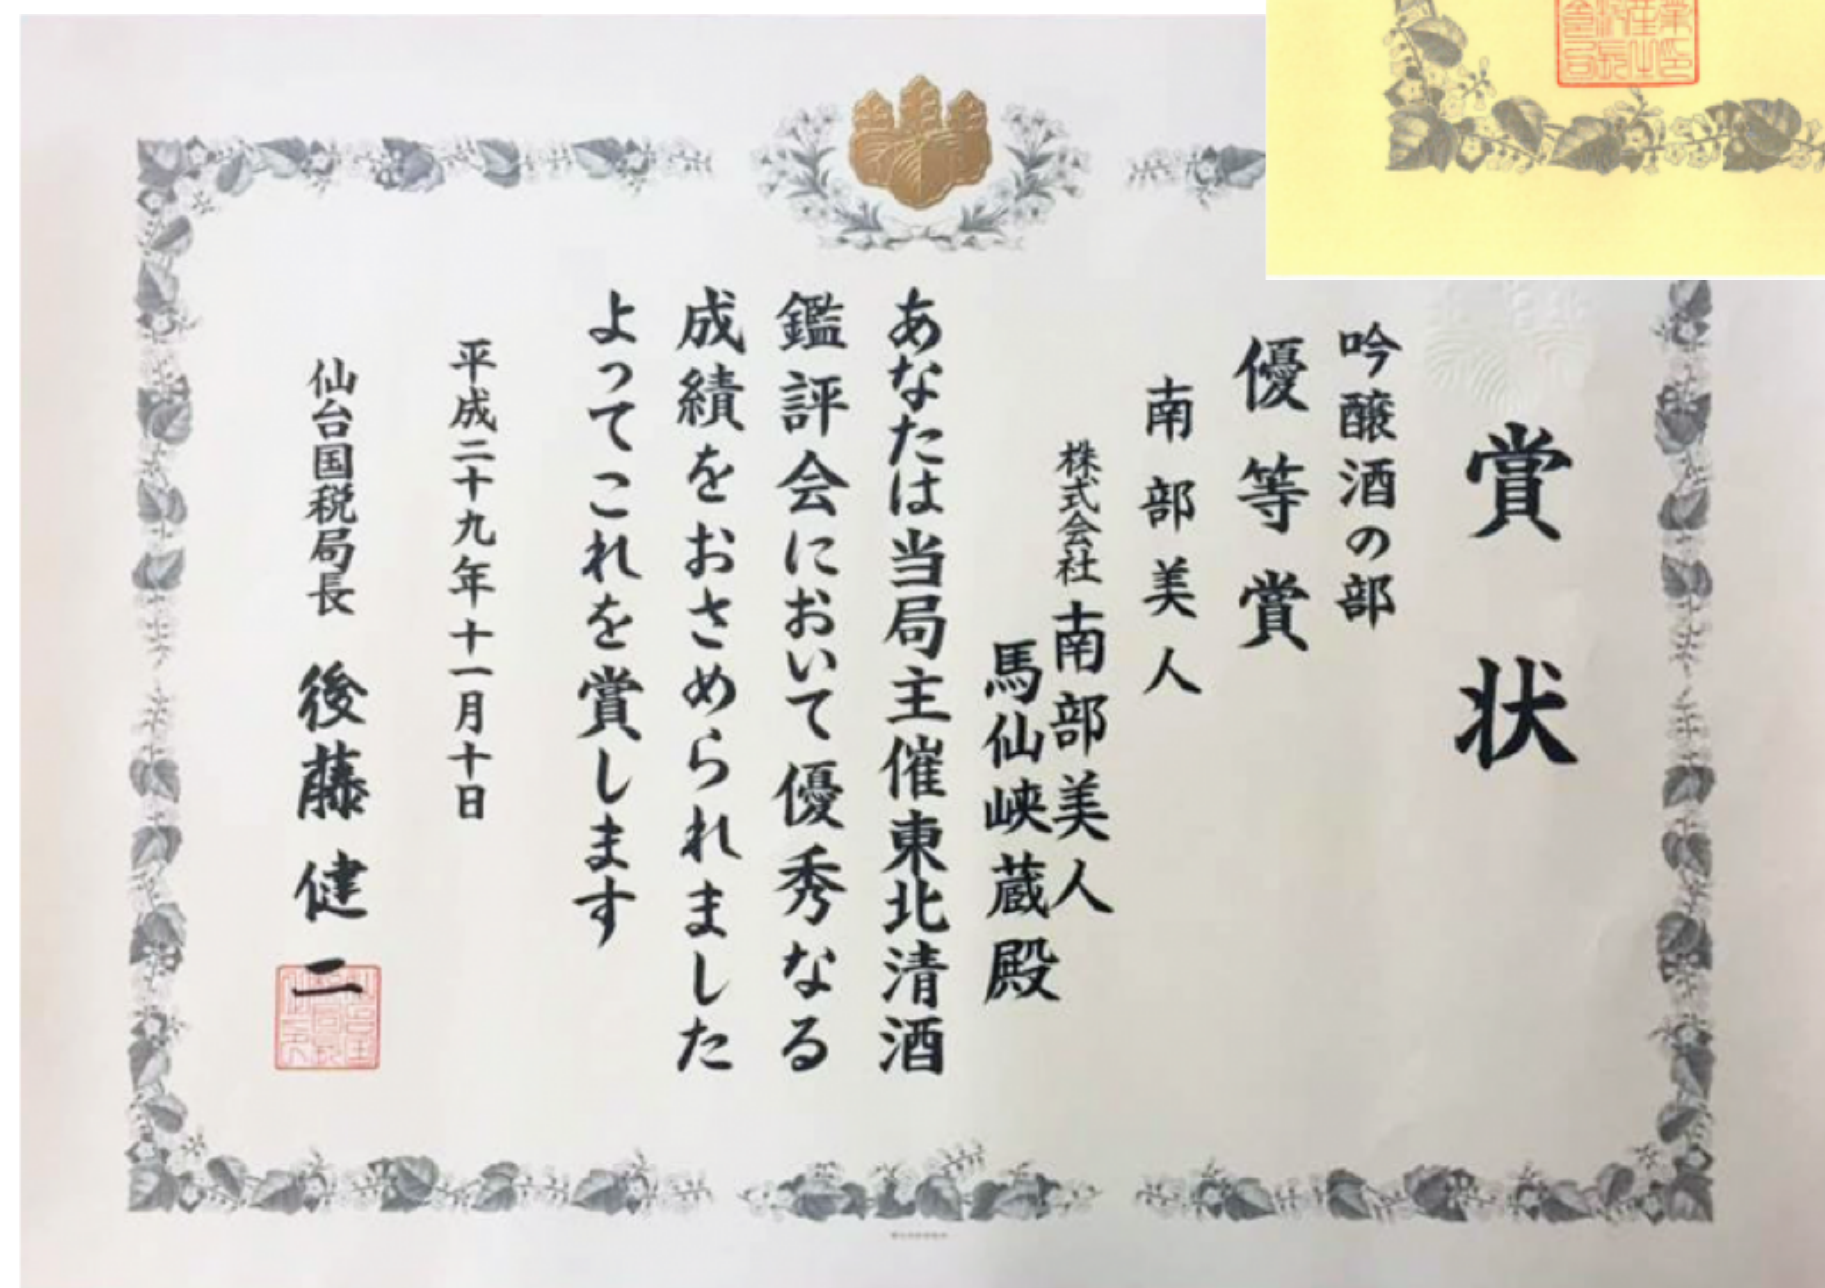 賞状
吟醸酒の部
優等賞
南部美人
株式会社南部美人
馬仙峡蔵殿
あなたは当局主催東北清酒
鑑評会において優秀なる
成績をおさめられました
よってこれを賞します
平成二十九年十一月十日
仙台国税局長 後藤健二